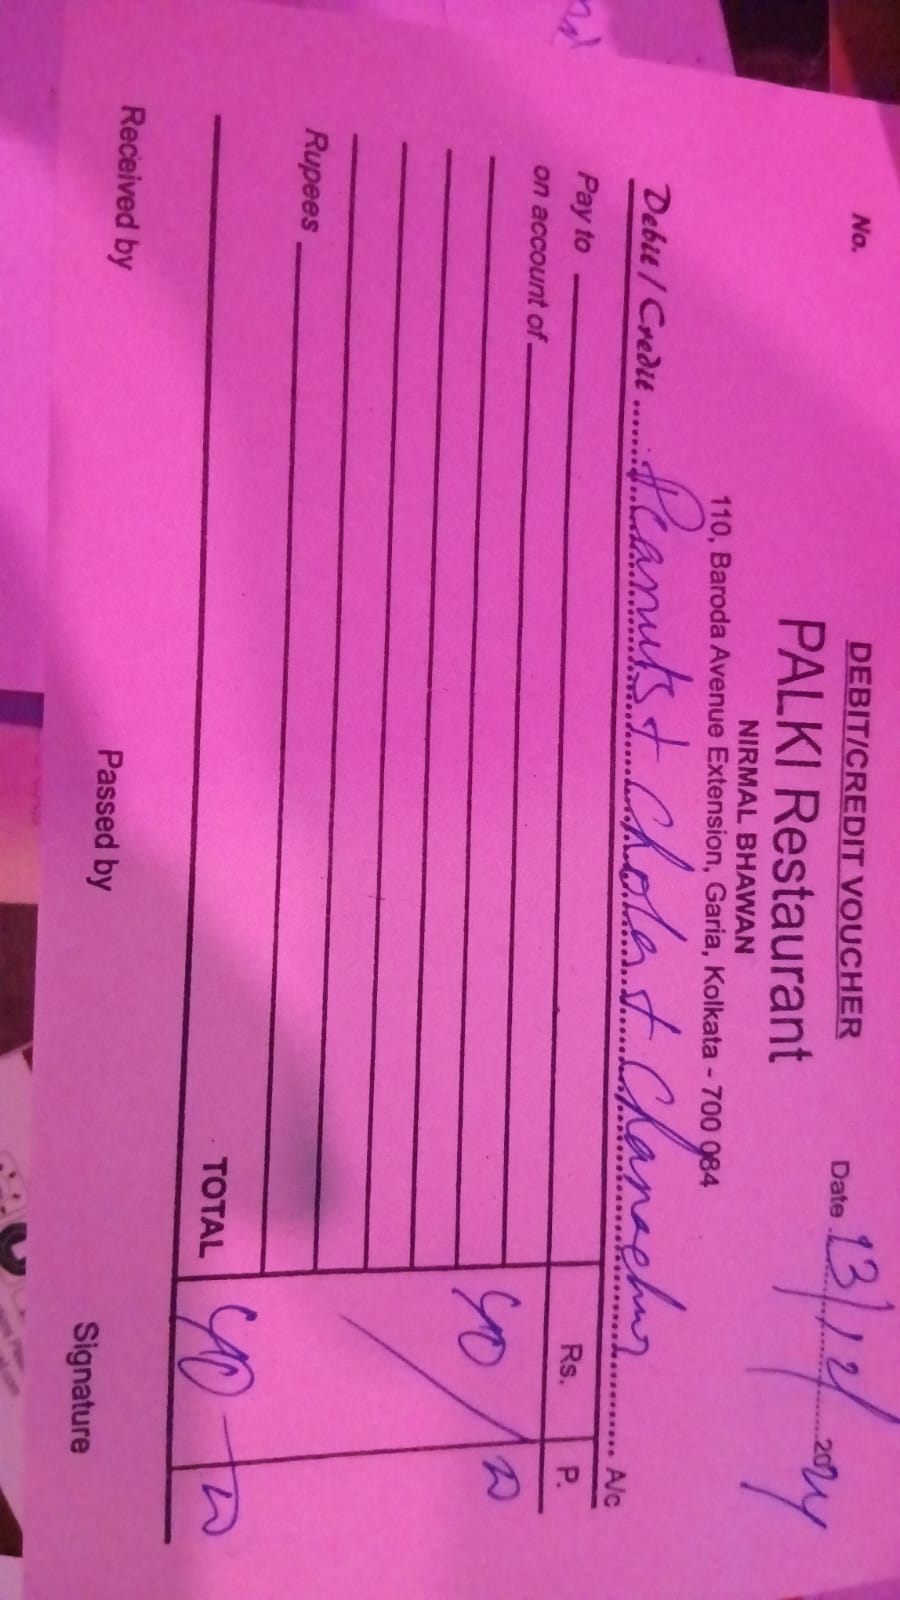 DEBIT/CREDIT VOUCHER
No.
Date 13/12/2024
PALKI Restaurant
NIRMAL BHAWAN
110, Baroda Avenue Extension, Garia, Kolkata - 700 084
Debit / Credit Peanuts + Chola + Chanachur A/c
Pay to
Rs. P.
on account of
Rupees
TOTAL
Received by
Passed by
Signature